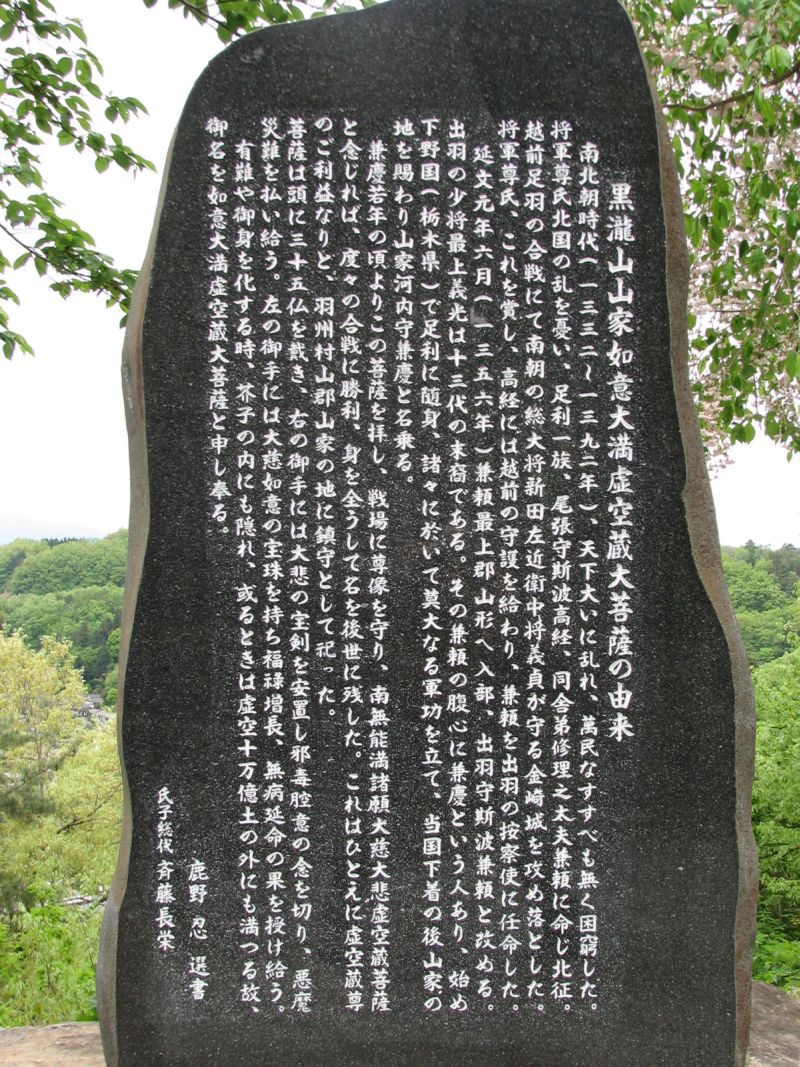 黒瀧山山家如意大満虚空蔵大菩薩の由来
南北朝時代(一三三二〜一三九二年)、天下大いに乱れ、萬民なすすべも無く困窮した。
将軍尊氏北国の乱を憂い、足利一族、尾張守斯波高経、同舎弟修理之太夫兼頼に命じ北征。
越前足羽の合戦にて南朝の総大将新田左近衛中将義貞が守る金崎城を攻め落とした。
将軍尊氏、これを賞し、高経には越前の守護を給わり、兼頼を出羽の按察使に任命した。
延文元年六月(一三五六年)兼頼最上郡山形へ入部、出羽守斯波兼頼と改める。
出羽の少将最上義光は十三代の末裔である。その兼頼の腹心に兼慶という人あり、始め
下野国(栃木県)で足利に随身、諸々に於いて莫大なる軍功を立て、当国下着の後山家の
地を賜わり山家河内守兼慶と名乗る。
兼慶若年の頃よりこの菩薩を拝し、戦場に尊像を守り、南無能満諸願大慈大悲虚空蔵菩薩
と念じれば、度々の合戦に勝利、身を全うして名を後世に残した。これはひとえに虚空蔵尊
のご利益なりと、羽州村山郡山家の地に鎮守として祀った。
菩薩は頭に三十五仏を戴き、右の御手には大悲の宝剣を安置し邪毒腔意の念を切り、悪魔
災難を払い給う。左の御手には大慈如意の宝珠を持ち福禄増長、無病延命の果を授け給う。
有難や御身を化する時、芥子の内にも隠れ、或るときは虚空十万億土の外にも満つる故、
御名を如意大満虚空蔵大菩薩と申し奉る。
鹿野忍 選書
氏子総代 斉藤長栄